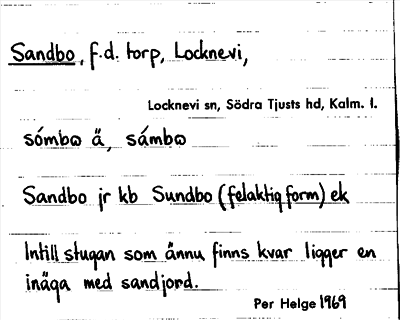 Sandbo, f.d. torp, Locknevi,
Locknevi sn, Södra Tjusts hd, Kalm. l.
sómbɷ ä, sámbɷ
Sandbo jr kb Sundbo (felaktig form) ek
Intill stugan som ännu finns kvar ligger en
inäga med sandjord.
Per Helge 1969